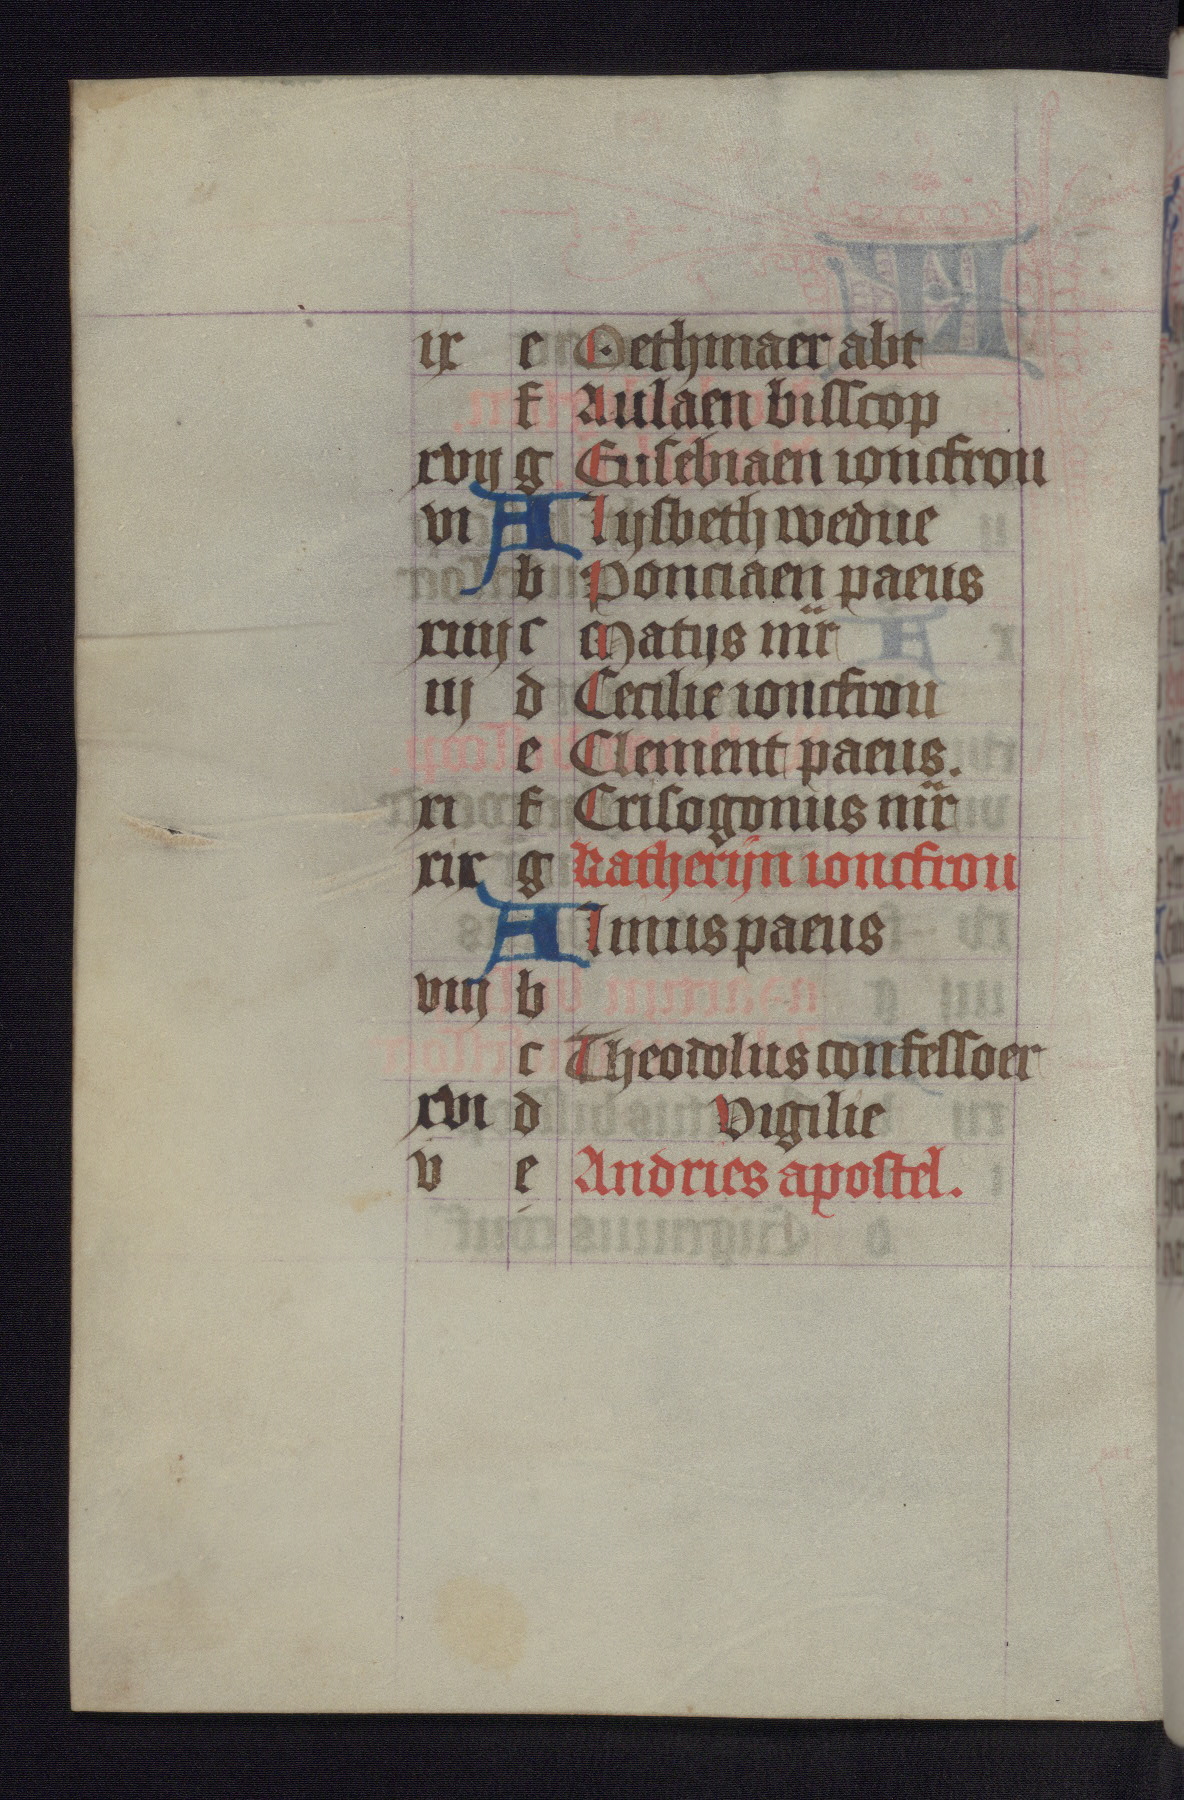 ix e Oethmaer abt
f Aulaen bisscop
xvij g Eusebiaen ioncfrou
vi A lijsbeth wedue
b Ponciaen paeus
xiiij c Matijs mr̄
iij d Cecilie ioncfrou
e Clement paeus.
xi f Crisogonius mr̄
xix g Katherijn ioncfrou
A linus paeus
viij b
c Theodolus confessoer
xvi d Vigilie
v e Andries apostel.